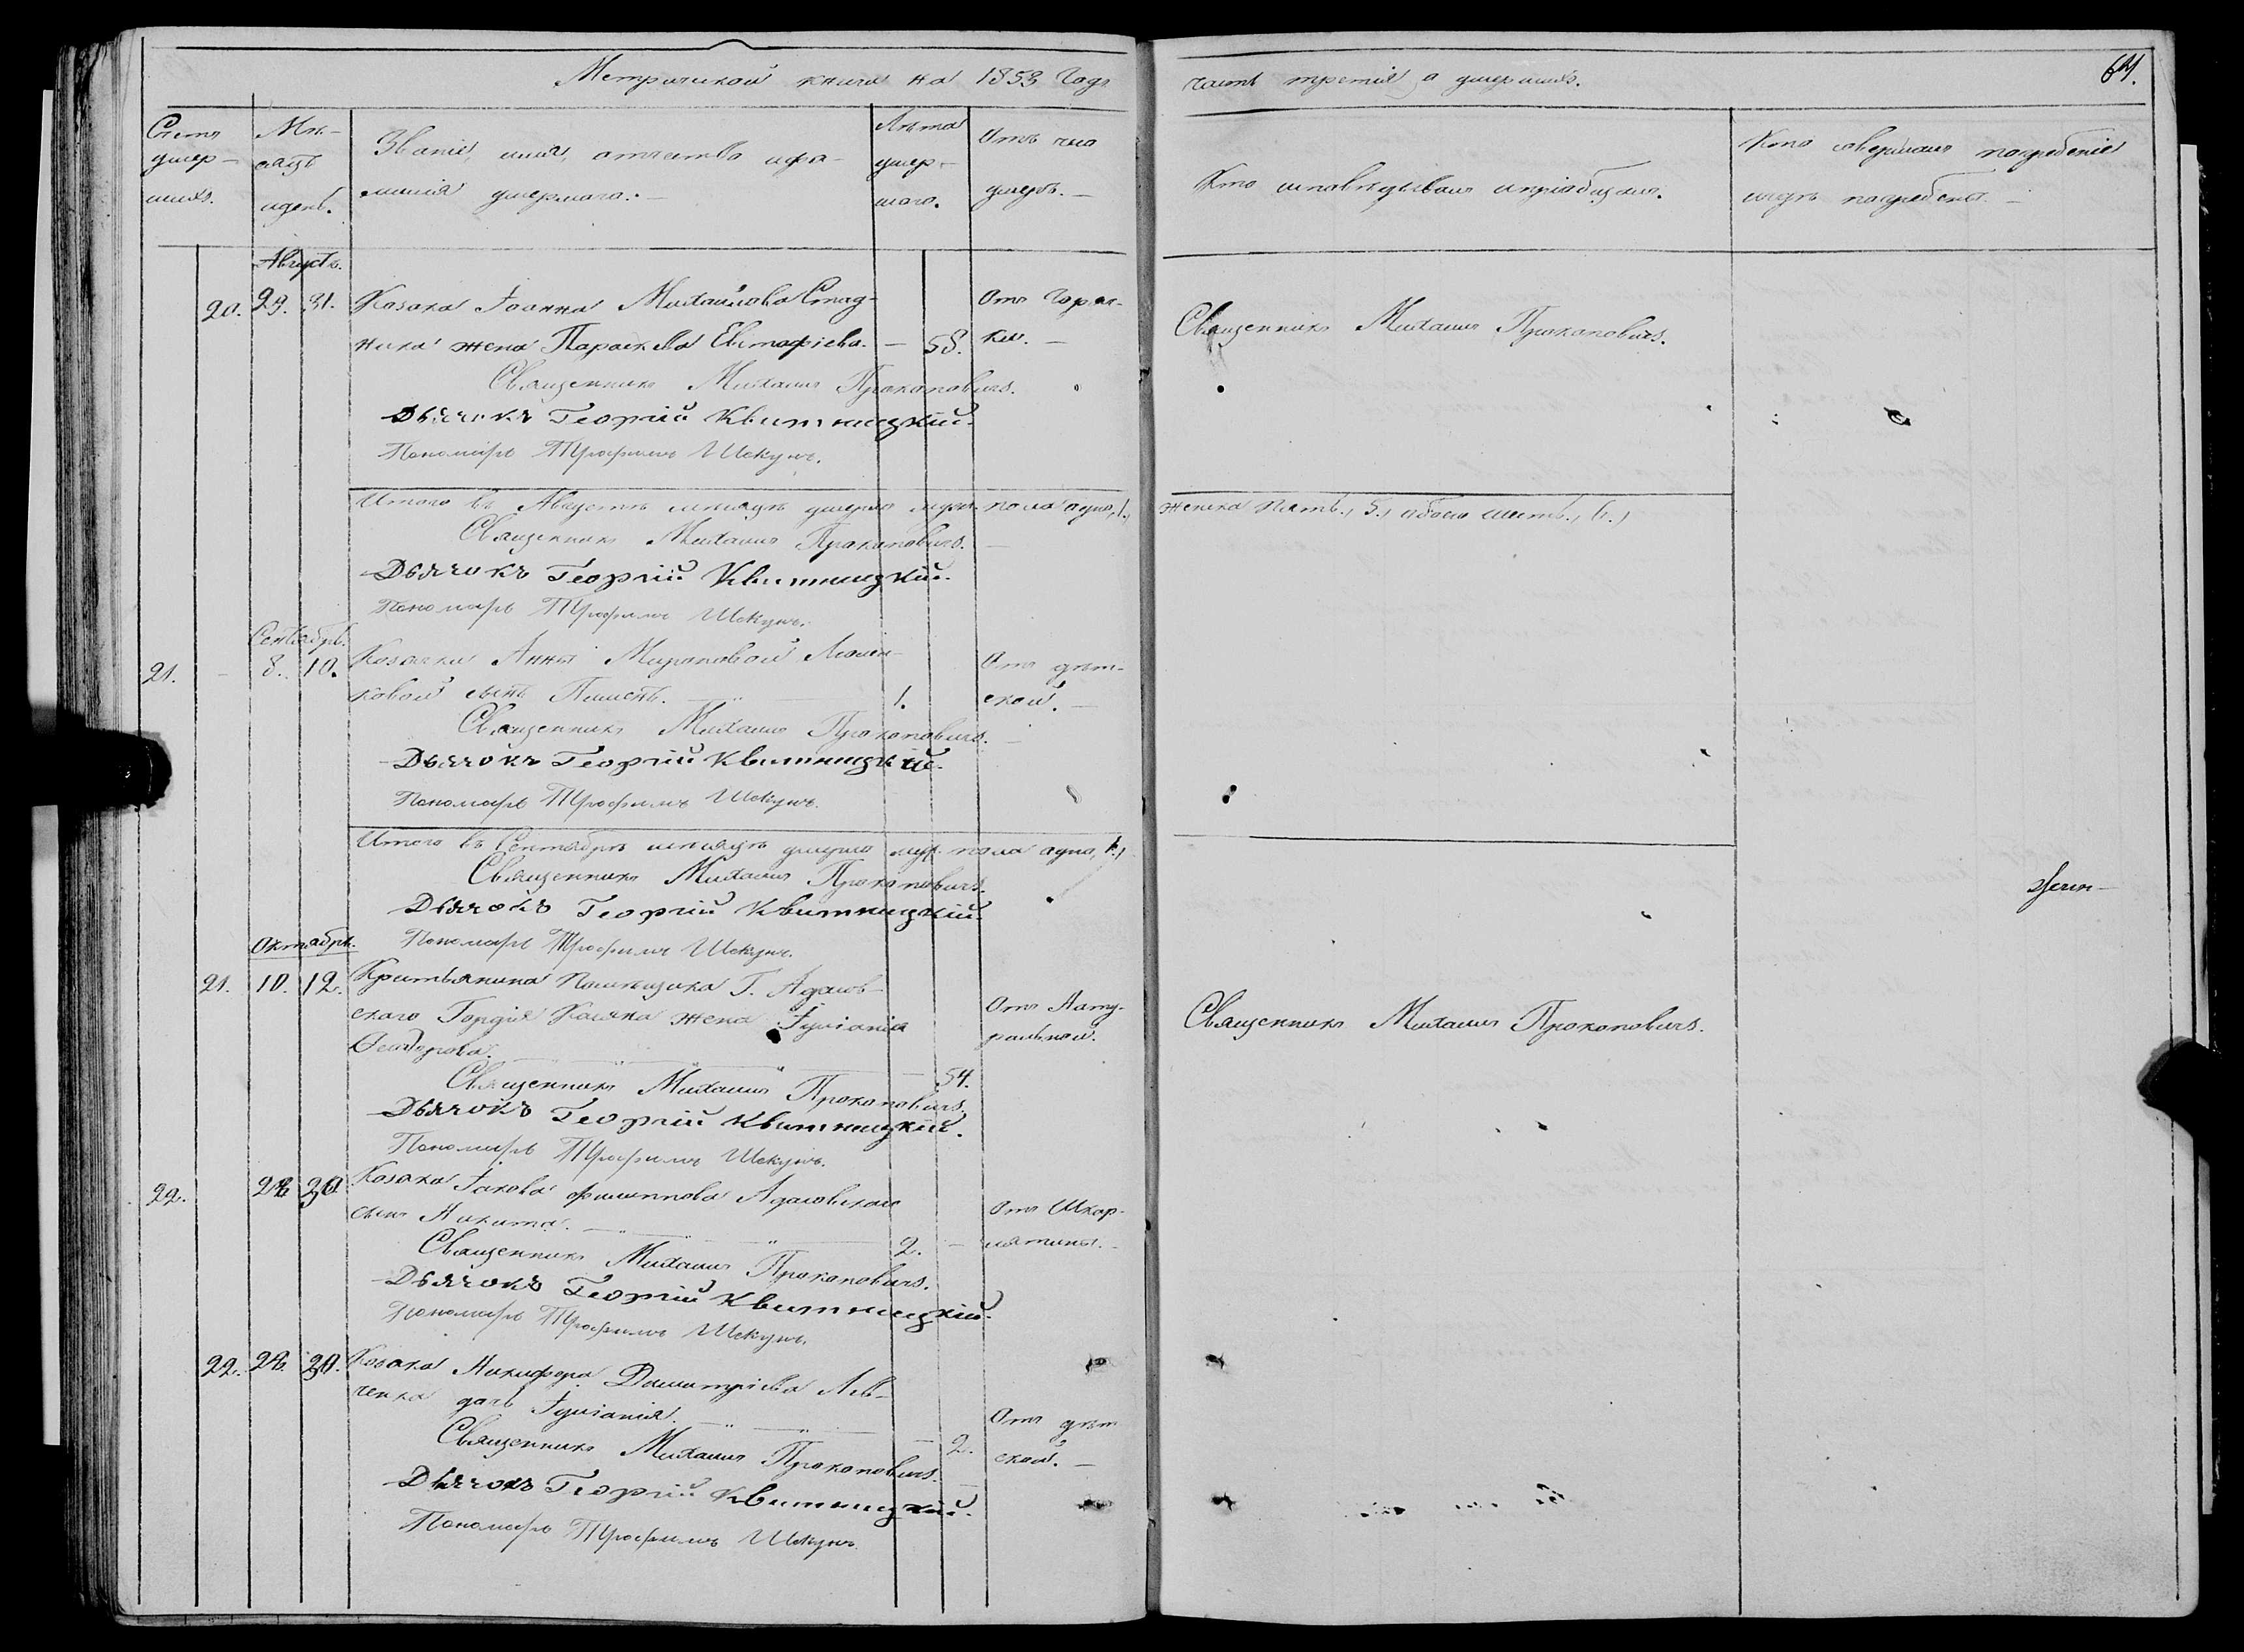 Метрической книги на 1853 годъ
часть третія, о умершихъ.
64.
Счетъ умер- шихъ.
Мѣ- сяцъ и день.
Званіе, имя, отчество и фа- милія умершаго.
Лѣта умер- шаго.
Отъ чего умеръ.
Кто исповѣдывалъ и пріобщалъ.
Кто совершалъ погребеніе и гдѣ погребены.
Августъ.
20. 29. 31. Козака Іоанна Михайлова Стад-
ника жена Параскева Евстафіева. — 58.
Отъ горяч-
ки. —
Священникъ Михаилъ Прокоповичъ.
Священникъ Михаилъ Прокоповичъ.
Дьячокъ Георгій Квитницкій.
Пономарь Трофимъ Шекунъ.
Итого въ Августѣ мѣсяцѣ умерло муж. пола одно, 1., женска пять, 5., обоего шесть, 6.,
Священникъ Михаилъ Прокоповичъ.
Дьячокъ Георгій Квитницкій.
Пономарь Трофимъ Шекунъ.
Сентябрь.
21. — 8. 10. Козачки Анны Мироновой
ковой сынъ 1.
Отъ дѣт-
ской. —
Священникъ Михаилъ Прокоповичъ.
Дьячокъ Георгій Квитницкій.
Пономарь Трофимъ Шекунъ.
Итого въ Сентябрѣ мѣсяцѣ умерло муж. пола одно, 1.,
Священникъ Михаилъ Прокоповичъ.
Дьячокъ Георгій Квитницкій.
Пономарь Трофимъ Шекунъ.
Октябрь.
21. 10. 12. Крестьянина Помѣщика Г. Адасов-
скаго Гордія Касяна жена Іуліанія
Феодорова. 54.
Отъ Нату-
ральной.
Священникъ Михаилъ Прокоповичъ.
Священникъ Михаилъ Прокоповичъ.
Дьячокъ Георгій Квитницкій.
Пономарь Трофимъ Шекунъ.
22. 28. 30. Козака Іакова Филиппова Адасовскаго
сынъ Никита. 2. —
Отъ Шкар-
латины. —
Священникъ Михаилъ Прокоповичъ.
Дьячокъ Георгій Квитницкій.
Пономарь Трофимъ Шекунъ.
22. 28. 30. Козака Никифора Димитріева Лев-
ченка дочь Іуліанія. — 2.
Отъ дѣт
ской. —
Священникъ Михаилъ Прокоповичъ.
Дьячокъ Георгій Квитницкій.
Пономарь Трофимъ Шекунъ.